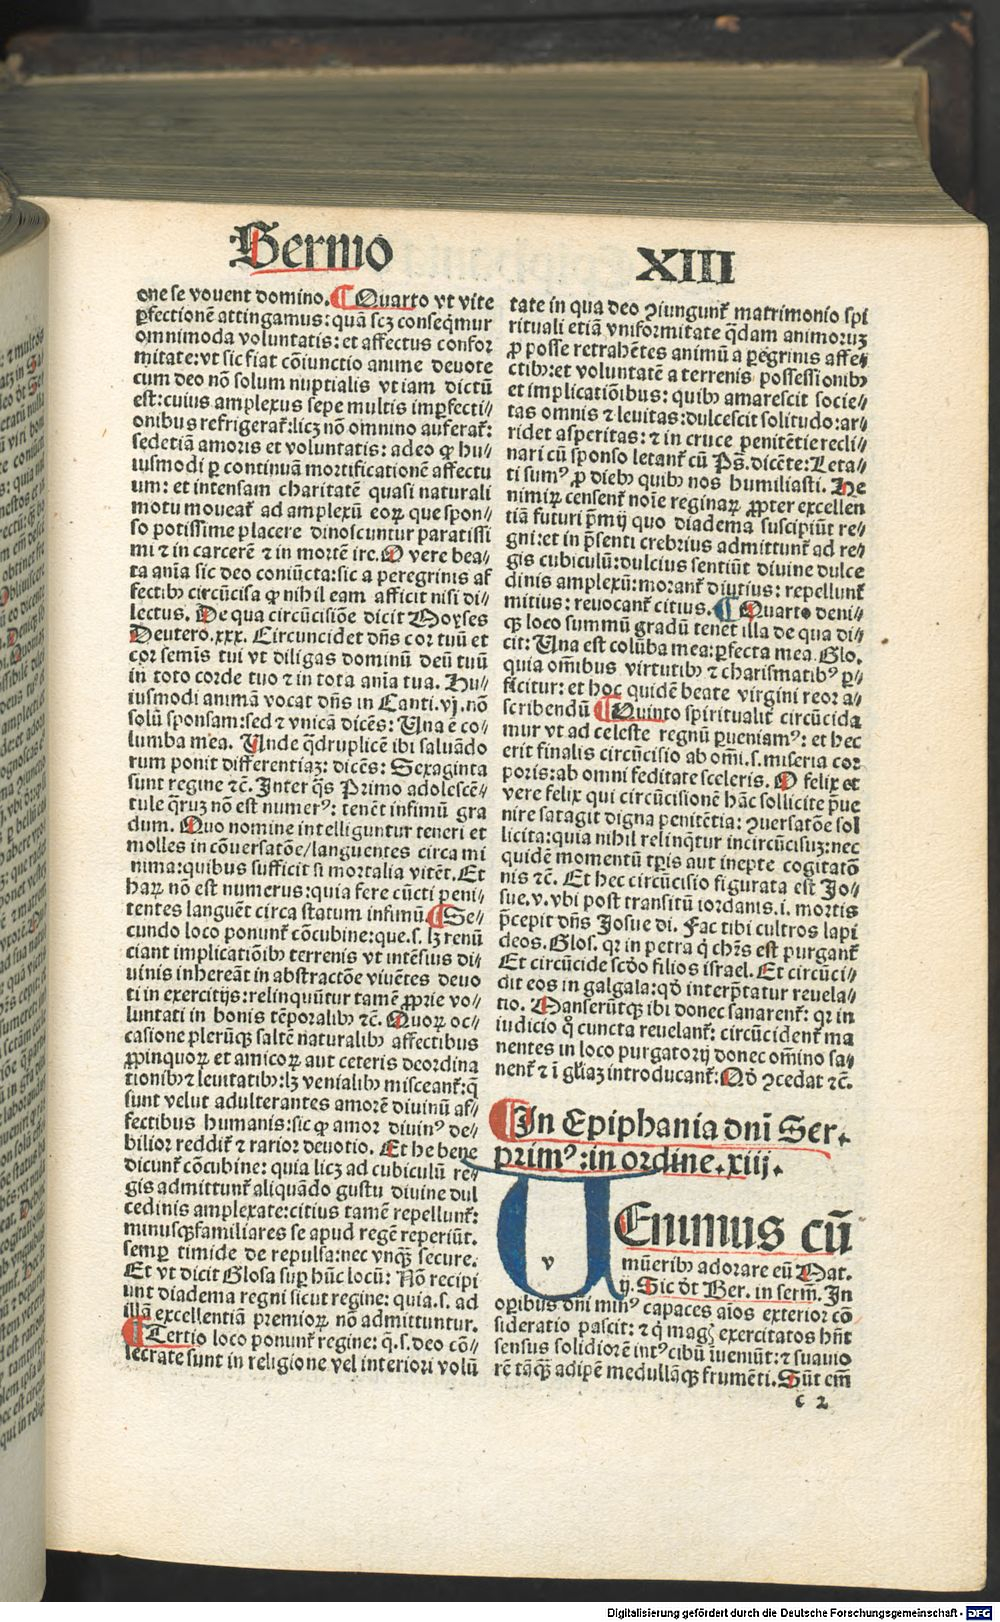 Sermo
XIII
one se vouent domino. ¶ Quarto vt vite
ꝑfectionē attingamus: quā scꝫ conseq̄mur
omnimoda voluntatis: et affectus confor
mitate: vt sic fiat cōiunctio anime deuote
cum deo nō solum nuptialis vt iam dictū
est: cuius amplexus sepe multis imꝑfecti⸗
onibus refrigerat᷑: licꝫ nō omnino auferat᷑:
sed etiā amoris et voluntatis: adeo ꝙ hu⸗
iusmodi ꝑ continuā mortificationē affectu
um: et intensam charitatē quasi naturali
motu moueat᷑ ad amplexū eoꝝ que spon⸗
so potissime placere dinoscuntur paratissi
mi ⁊ in carcerē ⁊ in mortē ire. O vere bea⸗
ta anīa sic deo coniūcta: sic a peregrinis af
fectibꝰ circūcisa ꝙ nihil eam afficit nisi di⸗
lectus. De qua circūcisiōe dicit Moyses
Deutero. xxx. Circuncidet dn̄s cor tuū et
cor semīs tui vt diligas dominū deū tuū
in toto corde tuo ⁊ in tota anīa tua. Hu⸗
iusmodi animā vocat dn̄s in Canti. vj. nō
solū sponsam: sed ⁊ vnicā dicēs: Una ē co⸗
lumba mea. Unde q̄druplicē ibi saluādo
rum ponit differentiaꝫ: dicēs: Sexaginta
sunt regine ⁊c̄. Inter q̄s Primo adolescē⸗
tule q̄ruꝫ nō est numerꝰ: tenēt infimū gra
dum. Quo nomine intelliguntur teneri et
molles in cōuersatōe/ languentes circa mi
nima: quibus sufficit si mortalia vitēt. Et
haꝝ nō est numerus: quia fere cūcti peni⸗
tentes languēt circa statum infimū. ¶ Se⸗
cundo loco ponunt᷑ cōcubine: que .s. lꝫ renū
ciant implicatiōibꝰ terrenis vt intēsius di⸗
uinis inhereāt in abstractōe viuētes deuo
ti in exercitijs: relinquūtur tamē ꝓprie vo⸗
luntati in bonis tēporalibꝰ ⁊c̄. Quoꝝ oc⸗
casione plerūqꝫ saltē naturalibꝰ affectibus
ꝓpinquoꝝ et amicoꝝ aut ceteris deordina
tionibꝰ ⁊ leuitatibꝰ: lꝫ venialibꝰ misceant᷑: q̄
sunt velut adulterantes amorē diuinū af⸗
fectibus humanis: sic ꝙ amor diuinꝰ de⸗
bilior reddit᷑ ⁊ rarior deuotio. Et he bene
dicunt᷑ cōcubine: quia licꝫ ad cubiculū re⸗
gis admittunt᷑ aliquādo gustu diuine dul
cedinis amplexate: citius tamē repellunt᷑:
minusqꝫ familiares se apud regē reperiūt.
semꝑ timide de repulsa: nec vnqꝫ secure.
Et vt dicit Glosa suꝑ hūc locū: Nō recipi
unt diadema regni sicut regine: quia .s. ad
illā excellentiā premioꝝ nō admittuntur.
¶ Tertio loco ponunt᷑ regine: q̄ .s. deo cō⸗
secrate sunt in religione vel interiori volū
tate in qua deo ꝯiungunt᷑ matrimonio spi
rituali etiā vniformitate q̄dam animoruꝫ
ꝓ posse retrahētes animū a ꝑegrinis affe
ctibꝰ: et voluntatē a terrenis possessionibꝰ
et implicatiōibus: quibꝰ amarescit socie⸗
tas omnis ⁊ leuitas: dulcescit solitudo: ar⸗
ridet asperitas: ⁊ in cruce penitētie recli⸗
nari cū sponso letant᷑ cū Ps̄. dicēte: Leta⸗
ti sumꝰ ꝓ diebꝰ quibꝰ nos humiliasti. He
nimiꝝ censent᷑ noīe reginaꝝ ꝓpter excellen
tiā futuri p̄mij quo diadema suscipiūt re⸗
gni: et in p̄senti crebrius admittunt᷑ ad re⸗
gis cubiculū: dulcius sentiūt diuine dulce
dinis amplexū: morant᷑ diutius: repellunt᷑
mitius: reuocant᷑ citius. ¶ Quarto deni⸗
qꝫ loco summū gradū tenet illa de qua di⸗
cit: Una est colūba mea: ꝑfecta mea. Glo.
quia om̄ibus virtutibꝰ ⁊ charismatibꝰ ꝑ⸗
ficitur: et hoc quidē beate virgini reor a⸗
scribendū ¶ Quinto spiritualit᷑ circūcida
mur vt ad celeste regnū ꝑueniamꝰ: et hec
erit finalis circūcisio ab om̄i .s. miseria cor
poris: ab omni feditate sceleris. O felix et
vere felix qui circūcisionē hāc sollicite p̄ue
nire satagit digna penitētia: ꝯuersatōe sol
licita: quia nihil relinq̄tur incircūcisuꝫ: nec
quidē momentū tꝑis aut inepte cogitatō
nis ⁊c̄. Et hec circūcisio figurata est Jo⸗
sue. v. vbi post transitū iordanis .i. mortis
p̄cepit dn̄s Josue di. Fac tibi cultros lapi
deos. Glos. qꝛ in petra q̇ chr̄s est purgant᷑
Et circūcide scd̄o filios israel. Et circūci⸗
dit eos in galgala: qd̄ interp̄tatur reuela⸗
tio. Manserūtqꝫ ibi donec sanarent᷑: qꝛ in
iudicio q̊ cuncta reuelant᷑: circūcident᷑ ma
nentes in loco purgatorij donec om̄ino sa⸗
nent᷑ ⁊ ī gl̄iaꝫ introducant᷑: Qd̄ ꝯcedat ⁊c̄.
¶ In Epiphania dn̄i Ser.
primꝰ: in ordine. xiij.
v
UEnimus cū
mūeribꝰ adorare eū Mat.
ij. Sic dt̄ Ber. in serm̄. In
oꝑibus dn̄i minꝰ capaces aīos exterior cō
sideratio pascit: ⁊ q̇ magꝭ exercitatos hn̄t
sensus solidiorē intꝰ cibū īueniūt: ⁊ suauio
rē tāqꝫ adipē medullāqꝫ frumēti. Sūt em̄
c 2
Digitalisierung gefördert durch die Deutsche Forschungsgemeinschaft - DFG